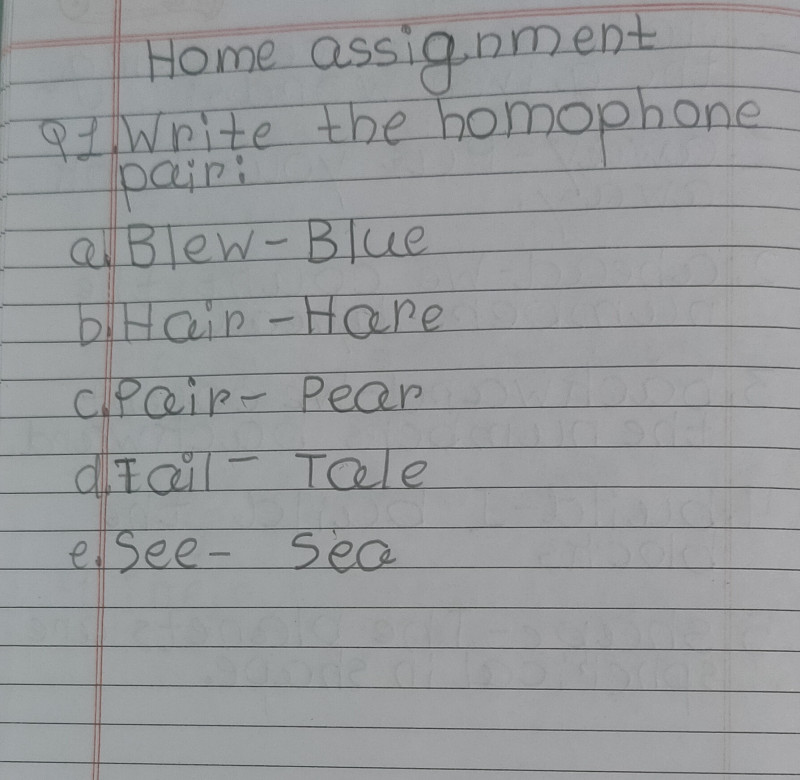 Home assignment
Q1. Write the homophone
pair:
a. Blew - Blue
b. Hair - Hare
c. Pair - Pear
d. Tail - Tale
e. See - Sea